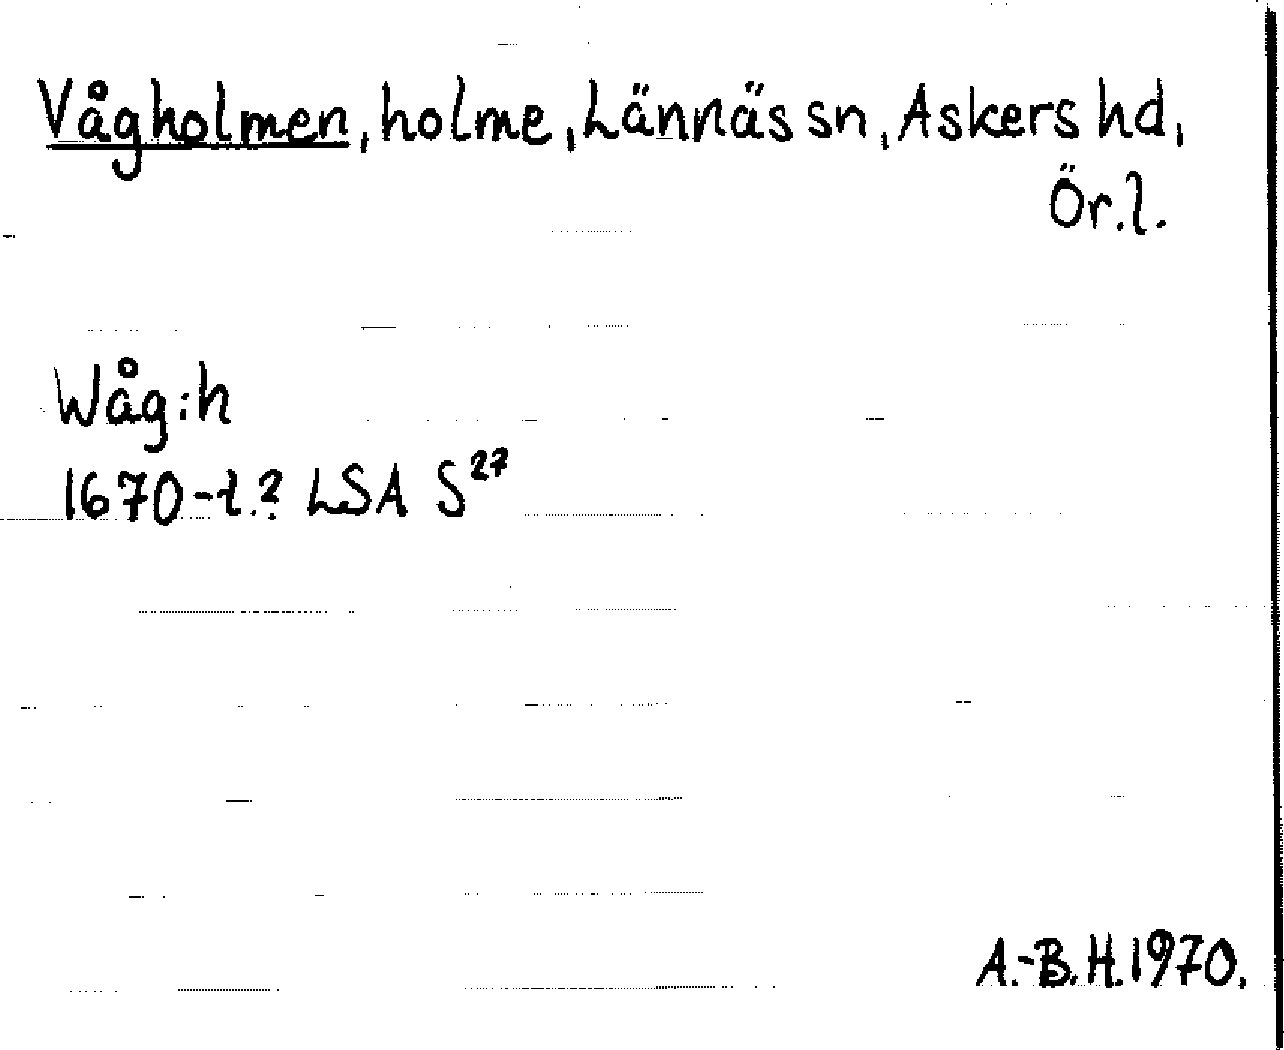 Vågholmen, holme, Lännäs sn, Askers hd,
Ör.l.
Wåg:h
1670-t.? LSA S27
A.-B.H.1970.